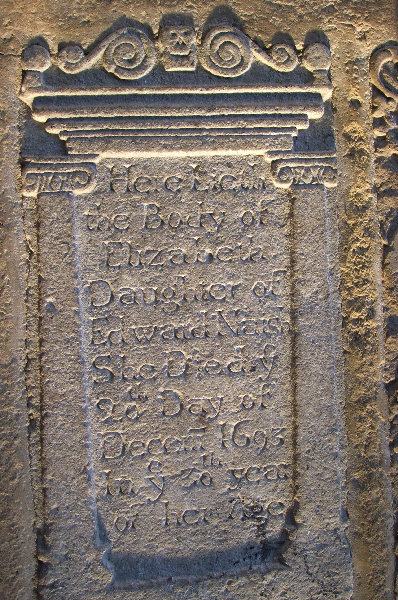 Here Lieth
the Body of
Elizabeth
Daughter of
Edward Nash
She Died yᵉ
20ᵗʰ Day of
Decem 1693
In yᵉ 20ᵗʰ year
of her Age